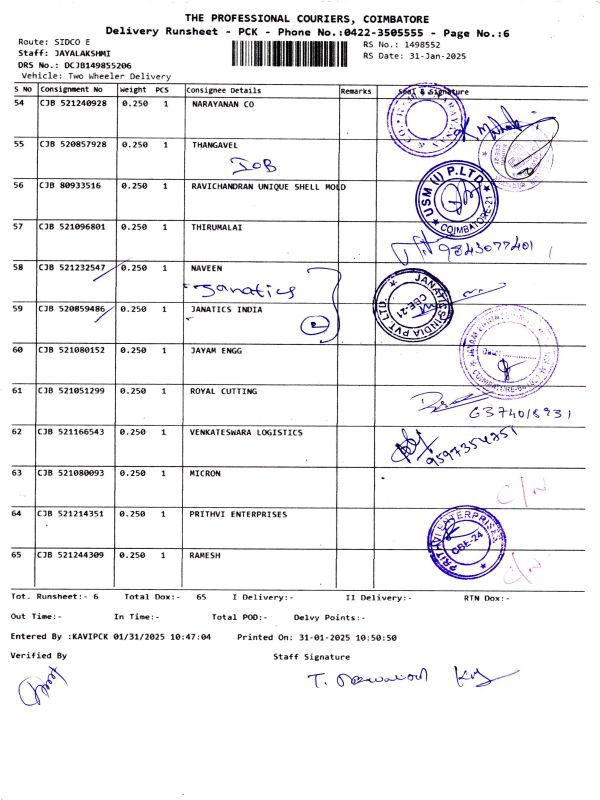 THE PROFESSIONAL COURIERS, COIMBATORE
Delivery Runsheet - PCK - Phone No.:0422-3505555 - Page No.:6
Route: SIDCO E
RS No.: 1498552
Staff: JAYALAKSHMI
RS Date: 31-Jan-2025
DRS No.: DCJB149855206
Vehicle: Two Wheeler Delivery
S No Consignment No Weight PCS Consignee Details Remarks Seal & Signature
54 CJB 521240928 0.250 1 NARAYANAN CO
55 CJB 520857928 0.250 1 THANGAVEL
IOB
56 CJB 80933516 0.250 1 RAVICHANDRAN UNIQUE SHELL MOLD
USM (I) P.LTD. COIMBATORE-21
57 CJB 521096801 0.250 1 THIRUMALAI
9843077401
58 CJB 521232547 0.250 1 NAVEEN
Janatics
JANATICS INDIA PVT LTD. CBE-21
59 CJB 520859486 0.250 1 JANATICS INDIA
2
60 CJB 521080152 0.250 1 JAYAM ENGG
61 CJB 521051299 0.250 1 ROYAL CUTTING
6374018931
62 CJB 521166543 0.250 1 VENKATESWARA LOGISTICS
9597354251
63 CJB 521080093 0.250 1 MICRON
C/N
64 CJB 521214351 0.250 1 PRITHVI ENTERPRISES
PRITHVI ENTERPRISES CBE-24
65 CJB 521244309 0.250 1 RAMESH
C/N
Tot. Runsheet:- 6 Total Dox:- 65 I Delivery:- II Delivery:- RTN Dox:-
Out Time:- In Time:- Total POD:- Delvy Points:-
Entered By :KAVIPCK 01/31/2025 10:47:04 Printed On: 31-01-2025 10:50:50
Verified By Staff Signature